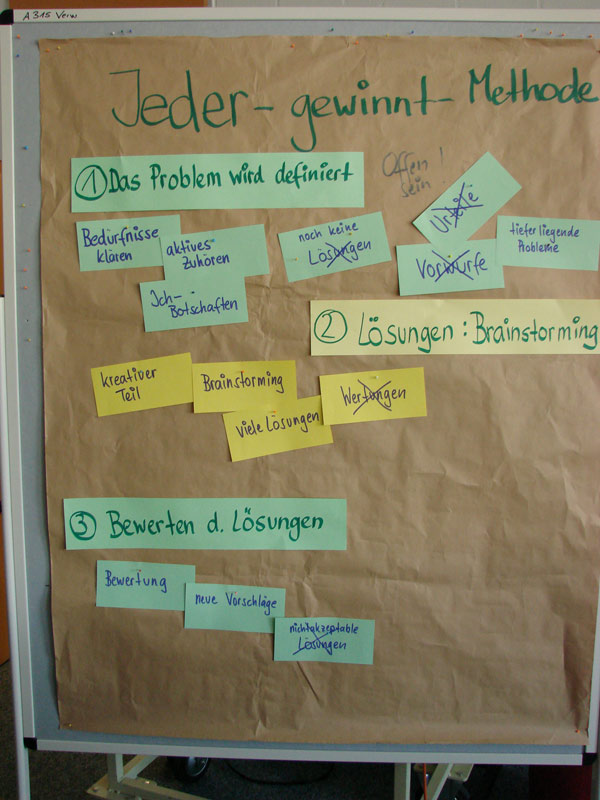 A315 Verw
Jeder-gewinnt-Methode
Offen!
sein
① Das Problem wird definiert
Urteile
Bedürfnisse
klären
aktives
Zuhören
noch keine
Lösungen
Vorwürfe
tieferliegende
Probleme
Ich-
Botschaften
② Lösungen: Brainstorming
kreativer
Teil
Brainstorming
Wertungen
viele Lösungen
③ Bewerten d. Lösungen
Bewertung
neue Vorschläge
nicht akzeptable
Lösungen